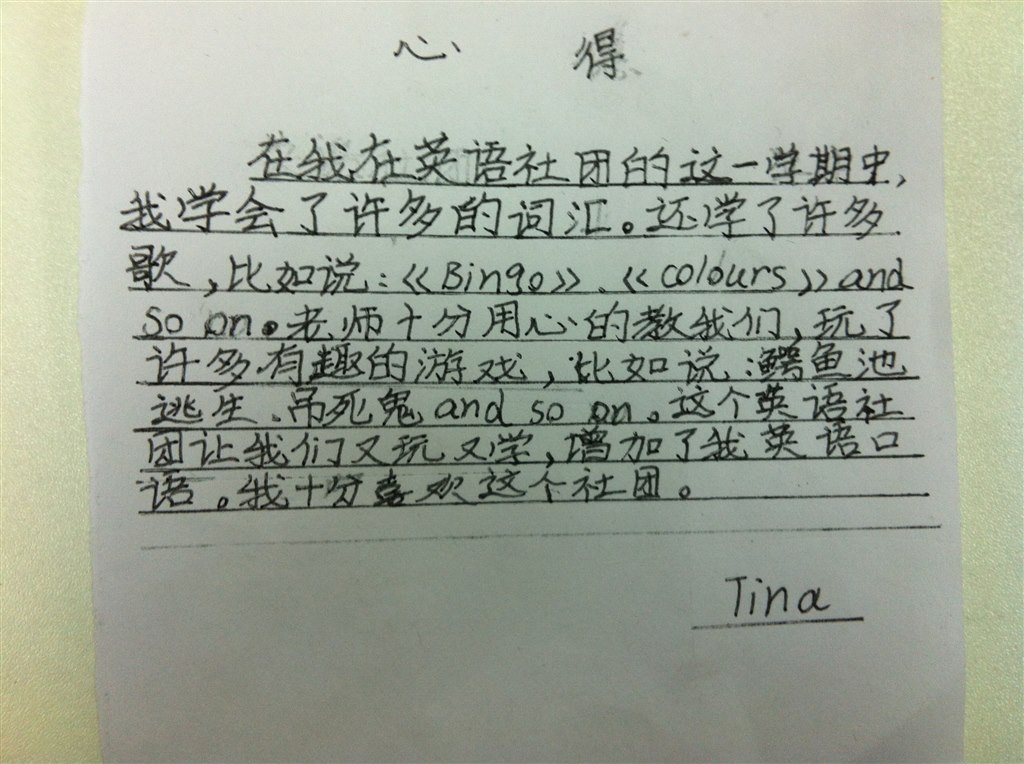 心 得
在我在英语社团的这一学期中,
我学会了许多的词汇。还学了许多
歌,比如说:《Bingo》、《colours》and
so on。老师十分用心的教我们,玩了
许多有趣的游戏,比如说:鳄鱼池
逃生、吊死鬼and so on。这个英语社
团让我们又玩又学,增加了我英语口
语。我十分喜欢这个社团。
Tina